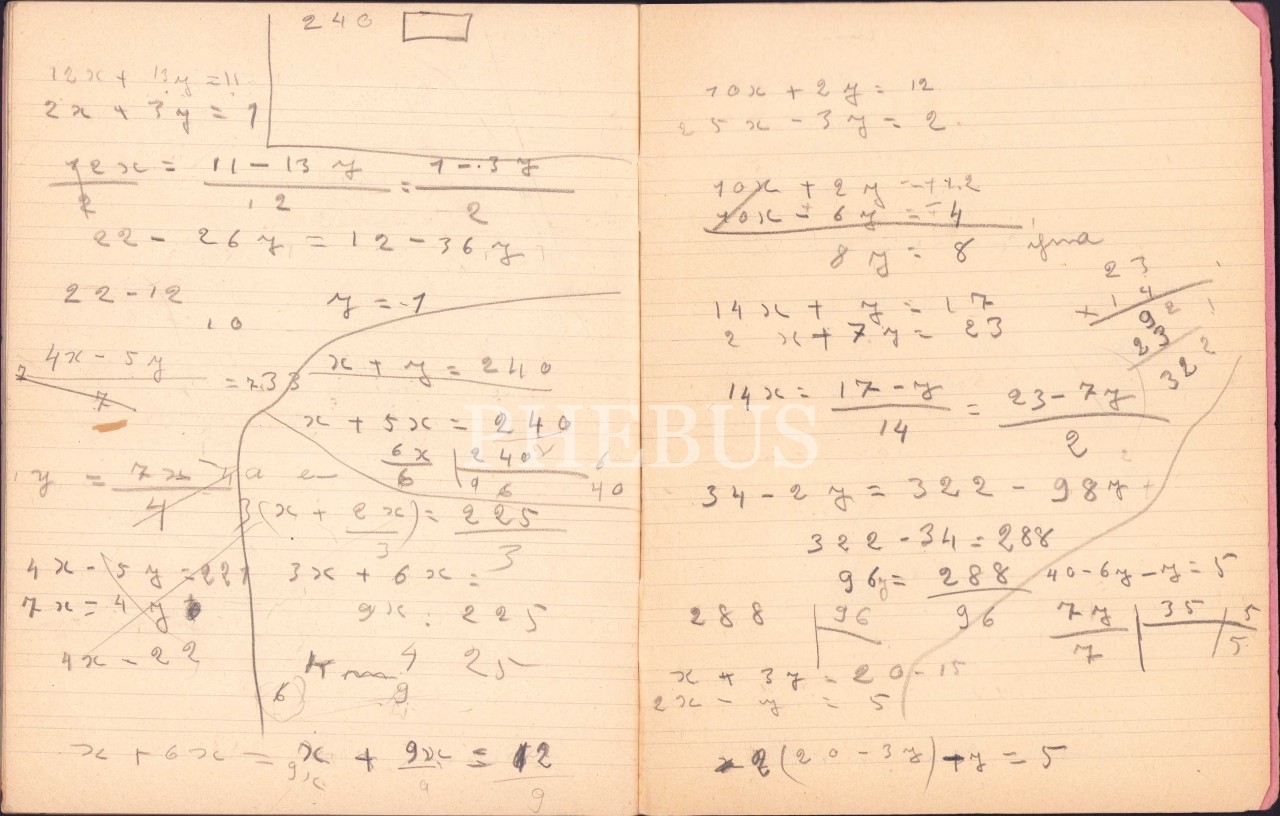 240
12x + 13y = 11
2x + 3y = 1
12x = 11 - 13y / 12 = 1 - 3y / 2
22 - 26y = 12 - 36y
22 - 12
10
y = -1
4x - 5y
7
= 7,33
x + y = 240
x + 5x = 240
6x / 6 | 240
6
40
y = 7x / 4
3(x + 2x / 3) = 225 / 3
4x - 5y = 221
3x + 6x =
7x = 4y
9x : 225
4x - 22
25
6
9
x + 6x = x + 9x / 9 = 12 / 9
9x
10x + 2y = 12
25x - 3y = 2
10x + 2y = 12
10x - 6y = 4
8y = 8
14x + y = 17
2x + 7y = 23
23
14
92
23
322
14x = 17 - y / 14 = 23 - 7y / 2
34 - 2y = 322 - 98y
322 - 34 = 288
96y = 288 / 96
40 - 6y - y = 5
288 | 96
7y / 7 | 35 | 5
5
x + 3y = 20 - 15
2x - y = 5
2(20 - 3y) - y = 5
PHEBUS